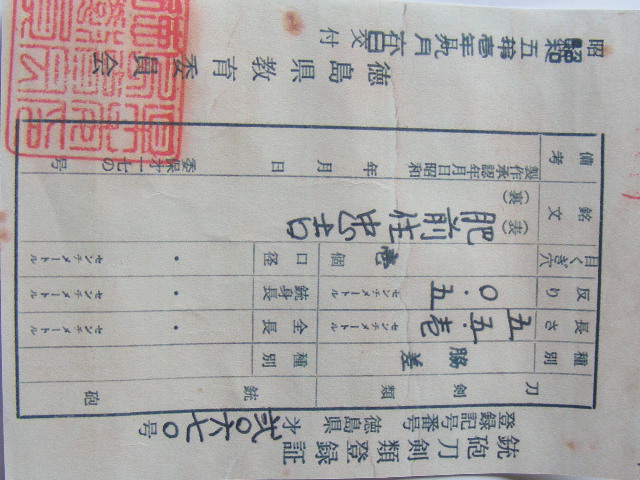 銃砲刀剣類登録証
登録記号番号 徳島県 第 弐〇六七〇 号
刀 剣 類 銃 砲
種別 脇差 種別
長さ 五五.壱 センチメートル 全長 ・ センチメートル
反り 〇.五 センチメートル 銃身長 ・ センチメートル
目くぎ穴 壱 個 口径 ・ センチメートル
銘文 (表) 肥前住忠吉
(裏)
備考 製作承認年月日 昭和 年 月 日 委保才十七の 号
徳島県教育委員会